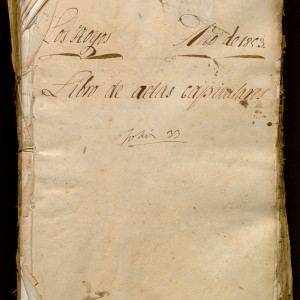 Los Hoyos Año de 1803.
Libro de actas capitulares
folios 33